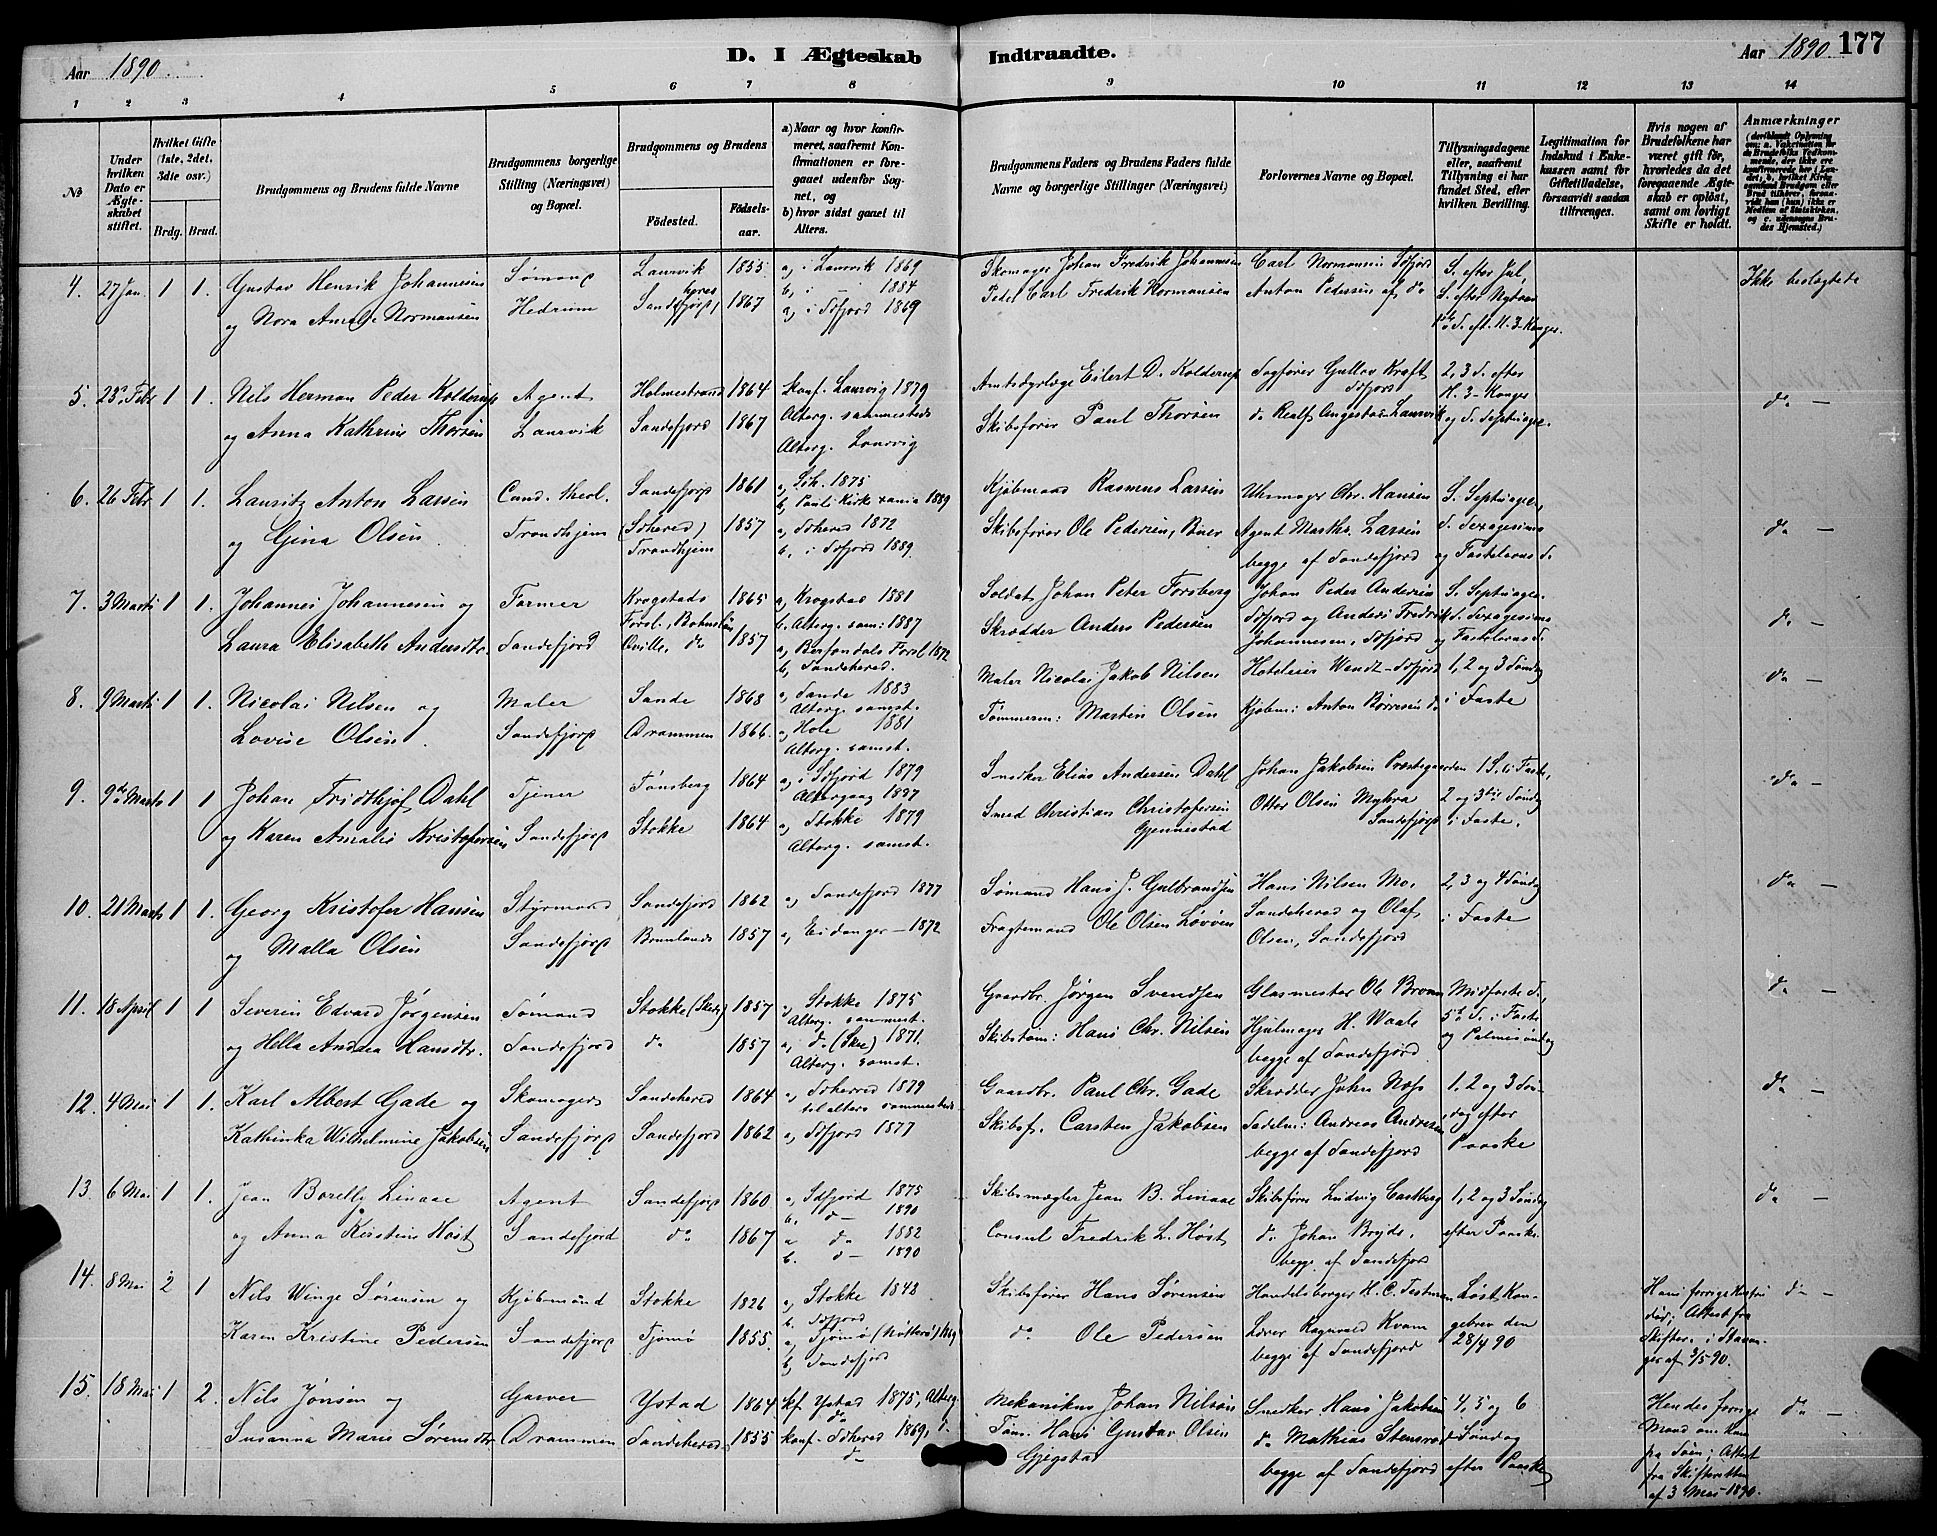 Aar 1890.
D. I Ægteskab
Indtraadte.
Aar 1890. 177
1 2 3 4 5 6 7 8 9 10 11 12 13 14
No
Under hvilken Dato er Ægteskabet stiftet.
Hvilket Gifte (1ste, 2det, 3die osv.)
Brdg. Brud.
Brudgommens og Brudens fulde Navne
Brudgommens borgerlige Stilling (Næringsvei) og Bopæl.
Brudgommens og Brudens
Födested.
Födselsaar.
a) Naar og hvor konfirmeret, saafremt Konfirmationen er foregaaet udenfor Sognet, og
b) hvor sidst gaaet til Alters.
Brudgommens Faders og Brudens Faders fulde Navne og borgerlige Stillinger (Næringsvei)
Forlovernes Navne og Bopæl.
Tillysningsdagene eller, saafremt Tillysning ei har fundet Sted, efter hvilken Bevilling.
Legitimation for Indskud i Enkekassen samt for Giftetilladelse, forsaavidt saadan tiltrænges.
Hvis nogen af Brudefolkene har været gift för, hvorledes da det foregaaende Ægteskab er oplöst, samt om lovligt Skifte er holdt.
Anmærkninger
4. 27 Jan. 1 1. Gustav Henrik Johannesen Sømand Laurvik 1855 a, i Laurvik 1869 Skomager Johan Fredrik Johannesen Carl Normansen Sdfjord S. efter Jul Ikke beslægtede
og Nora Amalie Normansen Hedrum Sandefjord 1867 b, i — 1884 Pedel Carl Fredrik Normansen Anton Pedersen af do S. efter Nytaar
a, i Sdfjord 1869 1ste S. eft. H. 3 Konger.
5. 23 Febr 1 1. Nils Herman Peder Kolderup Agent Holmestrand 1864 konf. Laurvig 1879 Amtsdyrlæge Eilert D. Kolderup Sagfører Gullov Kraft Sdfjord 2, 3 S. efter H. 3 Konger do —
og Anna Kathrine Thorsen Laurvik Sandefjord 1867 Alterg. sammesteds Skibsfører Paul Thorsen do Realf Laurvik og S. Septuages.
Alterg. Laurvig
6. 26 Febr 1 1. Lauritz Anton Larsen Cand. theol. Sandefjord 1861 a, 1875 Kjøbmand Rasmus Larsen Uhrmager Chr. Hansen S. Septuages,
og Gina Olsen Trondhjem (Sdherred) 1857 b, Pauls Kirke 1889 Skibsfører Ole Pedersen, Agent Marths. Larsen S. Sexagesima do —
Trondhjem a, Sdherred 1872 begge af Sandefjord og Fastelavns S.
b, i Sdfjord 1889
7. 3 Marts 1 1. Johannes Johannesen og Farmer Krogstads 1865 a, Krogstad 1881 Soldat Johan Peter Forsberg Johan Peder Andersen S. Septuages.
Forsl., Bohuslän b. Alterg. sam: 1887 Sdfjord og Anders Fredrik S. Sexagesima do —
Laura Elisabeth Andersdtr. Sandefjord Qville, do 1857 a, Forsl 1872 Skrædder Anders Pedersen Johannesen, Sdfjord og Fastelavns S.
b, Sandeherred.
8. 9 Marts 1 1. Nicolai Nilsen og Maler Sande 1868 a, Sande 1883 Maler Nicolai Jakob Nilsen Hoteleier Wendt Sdfjord 1, 2 og 3 Søndag do —
Lovise Olsen. Sandefjord Drammen 1866. Alterg. samst. Tømmerm: Martin Olsen Kjøbm: Anton Børresen do i Faste
a, Hole 1881
Alterg. samst.
9. 9de Marts 1 1 Johan Fridthjof Dahl Tjener Tønsberg 1864 a, i Sdfjord 1879 Snedker Elias Andersen Dahl Johan Jakobsen Præstegaarden 1 S. i Faste, do —
Altergang 1887 Smed Christian Christofersen Otter Olsen Myhra 2 og 3die Søndag
og Karen Amalie Kristofersen Sandefjord Stokke 1864 a, Stokke 1879 Gjennestad Sandefjord i Faste.
Alterg. samst.
10. 21 Marts 1 1. Georg Kristofer Hansen Styrmand Sandefjord 1862 a, Sandefjord 1877 Sømand Hans J. Gulbrandsen Hans Nilsen Mo. 2, 3 og 4 Søndag do —
og Malla Olsen Sandefjord Brunlanes 1857 a, Eidanger — 1872 Fragtemand Ole Olsen Løvøen Sandeherred og Olaf i Faste
Olsen, Sandefjord
11. 18 April 1 1 Severin Edvard Jørgensen Sømand Stokke (Skee) 1857 a, Stokke 1875 Gaardbr. Jørgen Svendsen Glasmester Ole Bruun Midfaste S. do —
Alterg. sammest. 5te S. i Faste
og Hella Andrea Hansdtr. Sandefjord do 1857 a, do (Skee) 1871. Skibstøm: Hans Chr. Nilsen Hjulmager H. Waale og Palmesøndag
Alterg. samst. begge af Sandefjord
12. 4 Mai 1 1. Karl Albert Gade og Skomager Sandeherred 1864 a, Sdherred 1879 Gaardbr. Paul Chr. Gade Skrædder John Næss 1, 2 og 3 Søn- do —
til alters sammesteds dag efter
Kathinka Wilhelmine Jakobsen Sandefjord Sandefjord 1862 a, Sdfjord 1877 Skibsf. Carsten Jakobsen Sadelm: Andreas Andresen Paaske
begge af Sandefjord
13. 6 Mai 1 1. Jean Borelly Linaae Agent Sandefjord 1860 a, Sdfjord 1875 Skibsmægler Jean B. Linaae Skibsfører Ludvig Castberg 1, 2 og 3 Søndag do —
b. do — 1890
og Anna Kirstine Høst Sandefjord do 1867 a do 1882 Consul Fredrik L. Høst do Johan Bryde. efter Paaske
b. do — 1890 begge af Sandefjord
14. 8 Mai 2 1 Nils Winge Sørensen og Kjøbmand Stokke 1826 a, Stokke 1843 Skibsfører Hans Sørensen Handelsborger H. C. Testman Løst Kon- Hans forrige Hustru do —
b. Sdfjord gebrev den død; Attest fra
Karen Kristine Pedersen Sandefjord Tjømø 1855. a, Tjømø (Nøtterø) 1869 do Ole Pedersen Lærer Ragnvald Kvam 28/4 90 Skifter. i Stavan-
b, Sandefjord begge af Sandefjord ger af 3/5 90.
15. 18 Mai 1 2. Nils Jønsen og Garver Ystad 1864 kf Ystad 1875, Alterg. Mekanikus Johan Nilsson Snedker Hans Jakobsen 4, 5 og 6 Hendes forrige do —
do Mand omkom
Susanna Marie Sørensdtr Drammen Sandeherred 1855 konf. Sdherred 1869, Tøm. Hans Gustav Olsen do Mathias Stensrød Søndag paa Søen; Attest
do Gjegstad begge af Sandefjord efter Paaske fra Skifteretten
af 3 Mai 1890.